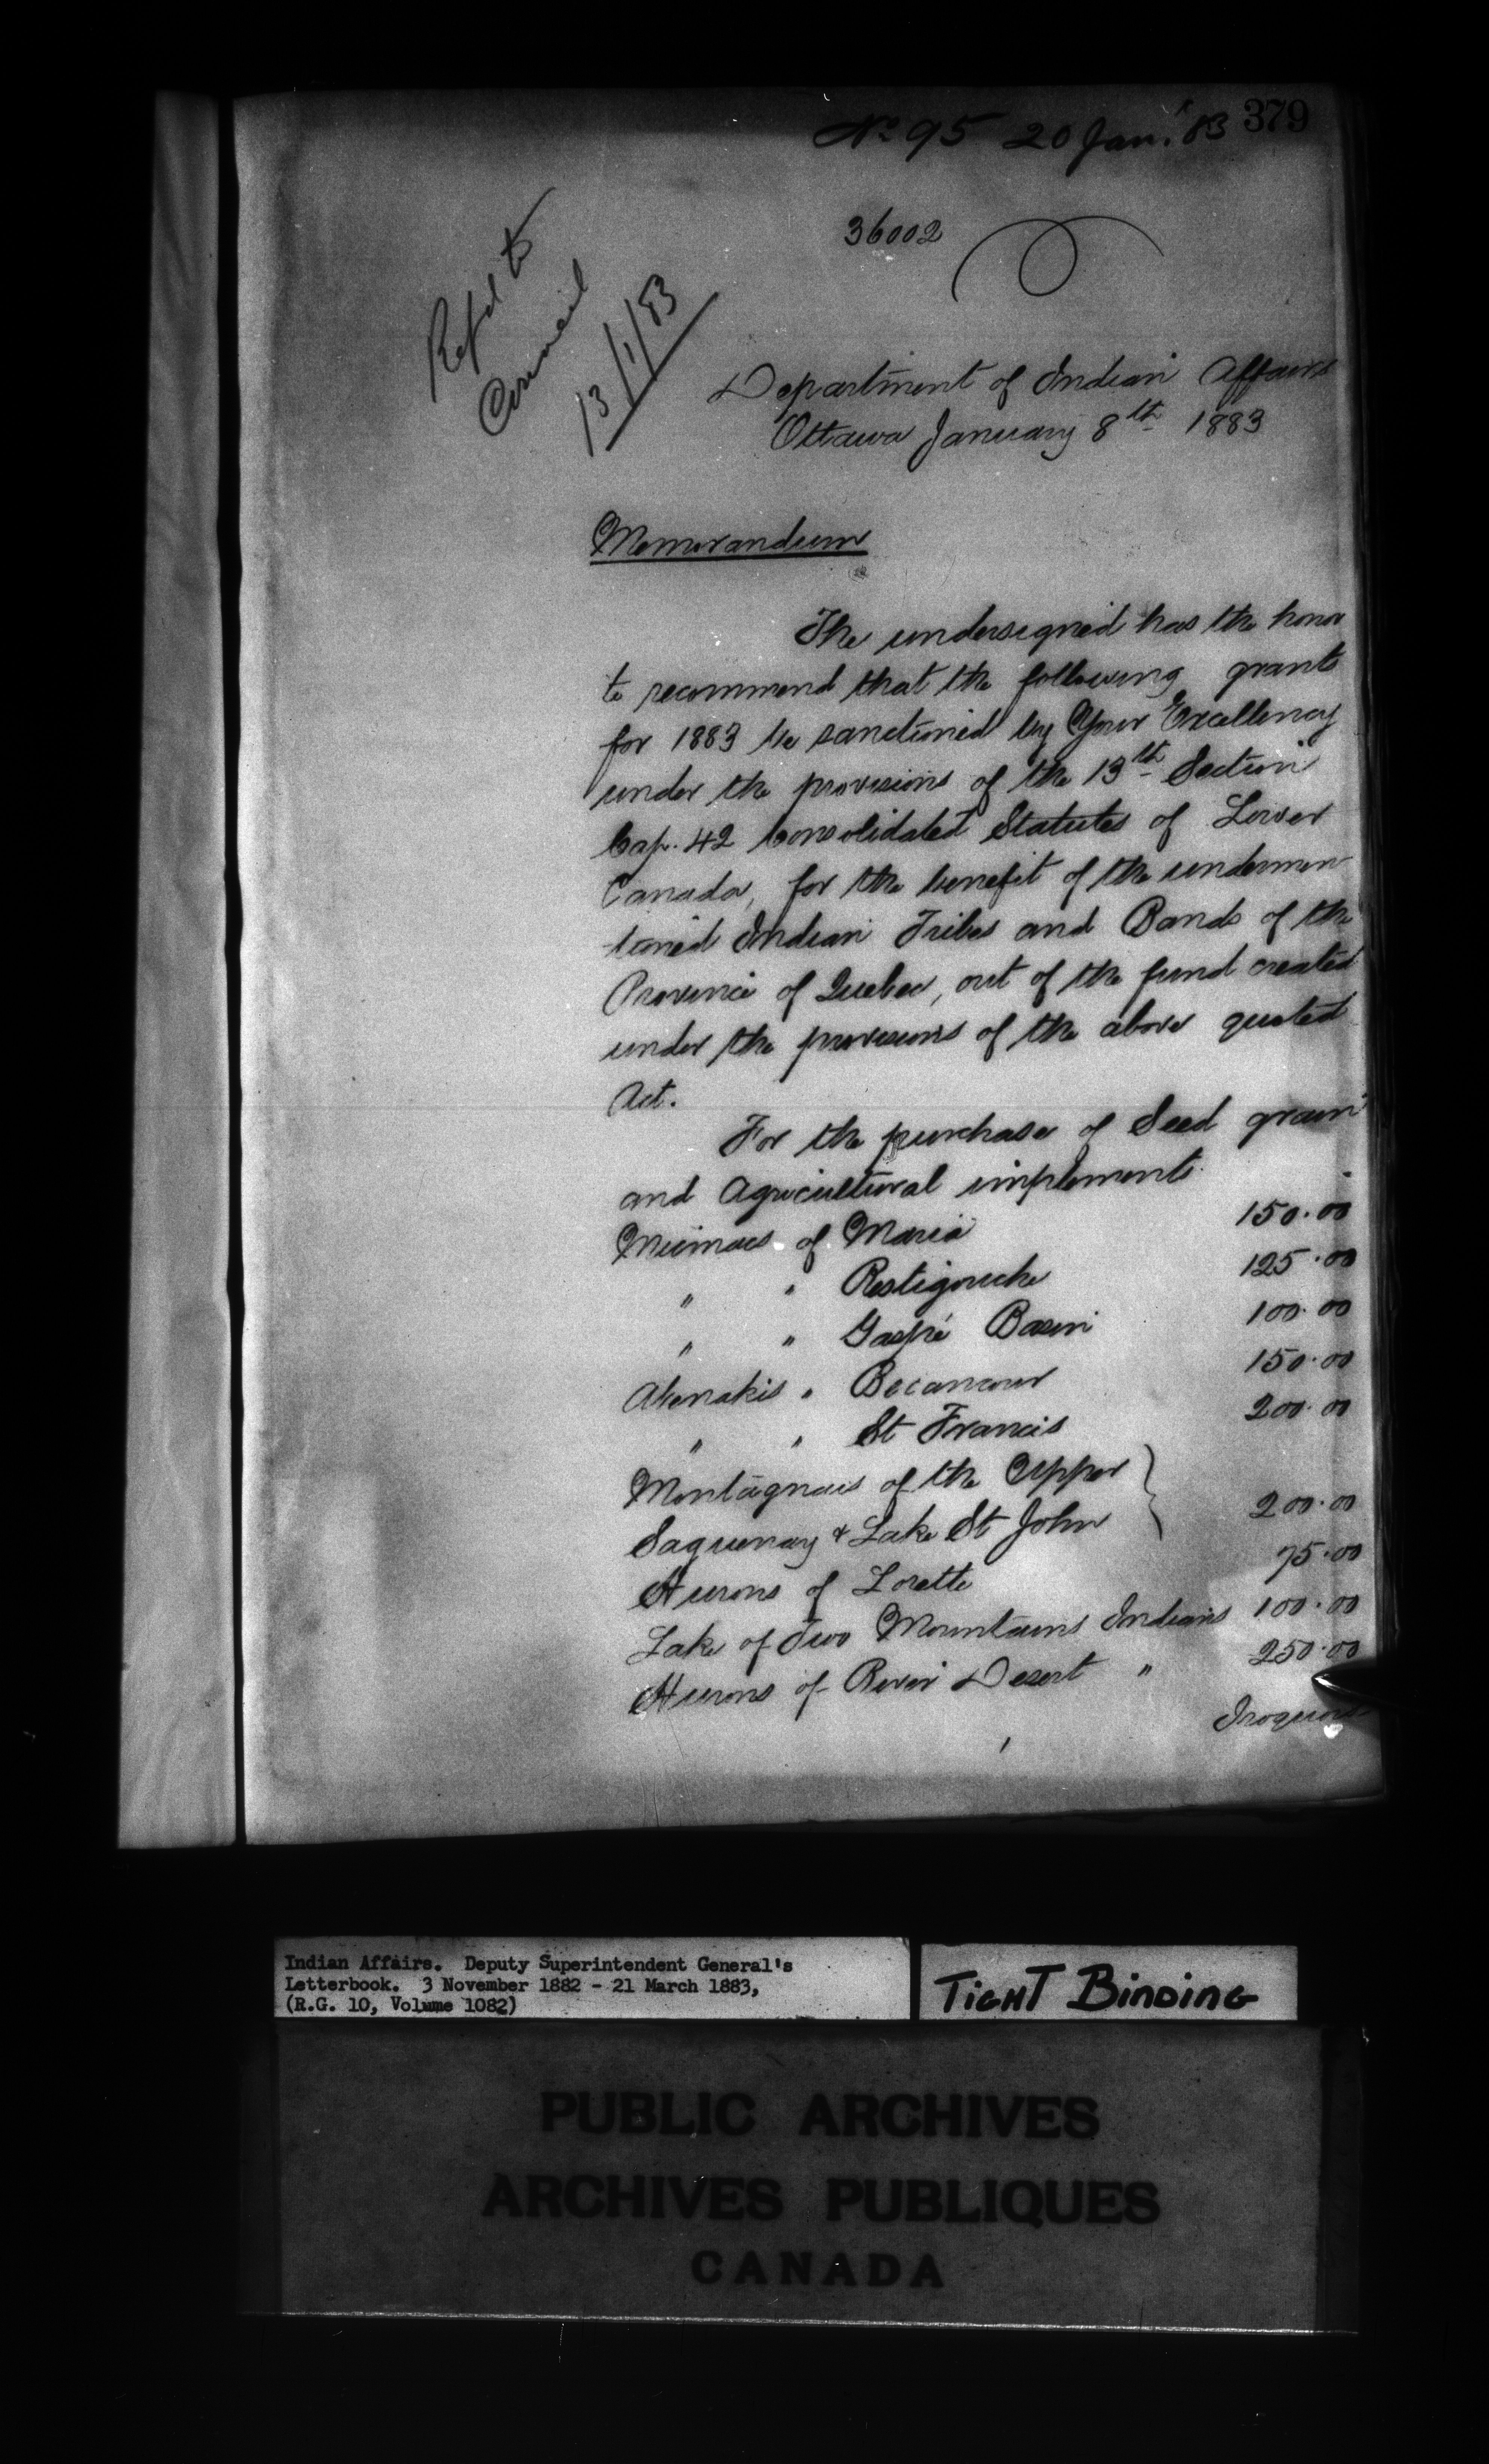 379
No 95 20 Jan. '83
36002
Refd to
Council
13/1/83
Department of Indian Affairs
Ottawa January 8th 1883
Memorandum
The undersigned has the honor
to recommend that the following grants
for 1883 be sanctioned by Your Excellency
under the provisions of the 13th Section
Cap. 42 Consolidated Statutes of Lower
Canada, for the benefit of the undermen-
tioned Indian Tribes and Bands of the
Province of Quebec, out of the fund created
under the provisions of the above quoted
Act.
For the purchase of Seed grain
and Agricultural implements.
Micmacs of Maria 150.00
" " Restigouche 125.00
" " Gaspé Basin 100.00
Abenakis " Becancour 150.00
" " St Francis 200.00
Montagnais of the Upper
Saguenay & Lake St John } 200.00
Hurons of Lorette 75.00
Lake of Two Mountains Indians 100.00
Hurons of River Desert " 250.00
Iroquois
Indian Affairs. Deputy Superintendent General's
Letterbook. 3 November 1882 - 21 March 1883,
(R.G. 10, Volume 1082)
TIGHT BINDING
PUBLIC ARCHIVES
ARCHIVES PUBLIQUES
CANADA